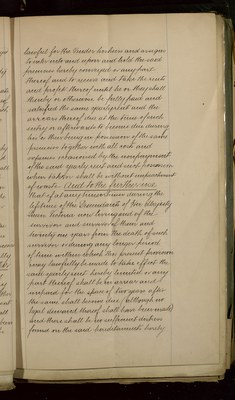 lawful for the Vendor his heirs and assigns
to enter into and upon and hold the said
premises hereby conveyed or any part
thereof and to receive and take the rents
and profits thereof until he or they shall
thereby or otherwise be fully paid and
satisfied the same yearly rent and the
arrears thereof due at the time of such
entry or afterwards to become due during
his or their being in possession of the same
premises together with all costs and
expenses occasioned by the nonpayment
of the said yearly rent and such possession
when taken shall be without impeachment
of waste. And to the further use
that if at any time or times during the
lifetime of the Descendants of Her Majesty
Queen Victoria now living and of the
survivor and survivors of them and
twenty one years from the death of such
survivor or during any longer period
of time within which the present provision
may lawfully be made to take effect the
said yearly rent hereby limited or any
part thereof shall be in arrear and
unpaid for the space of two years after
the same shall become due (although no
legal demand thereof shall have been made)
and there shall be no sufficient distress
found on the said hereditaments hereby